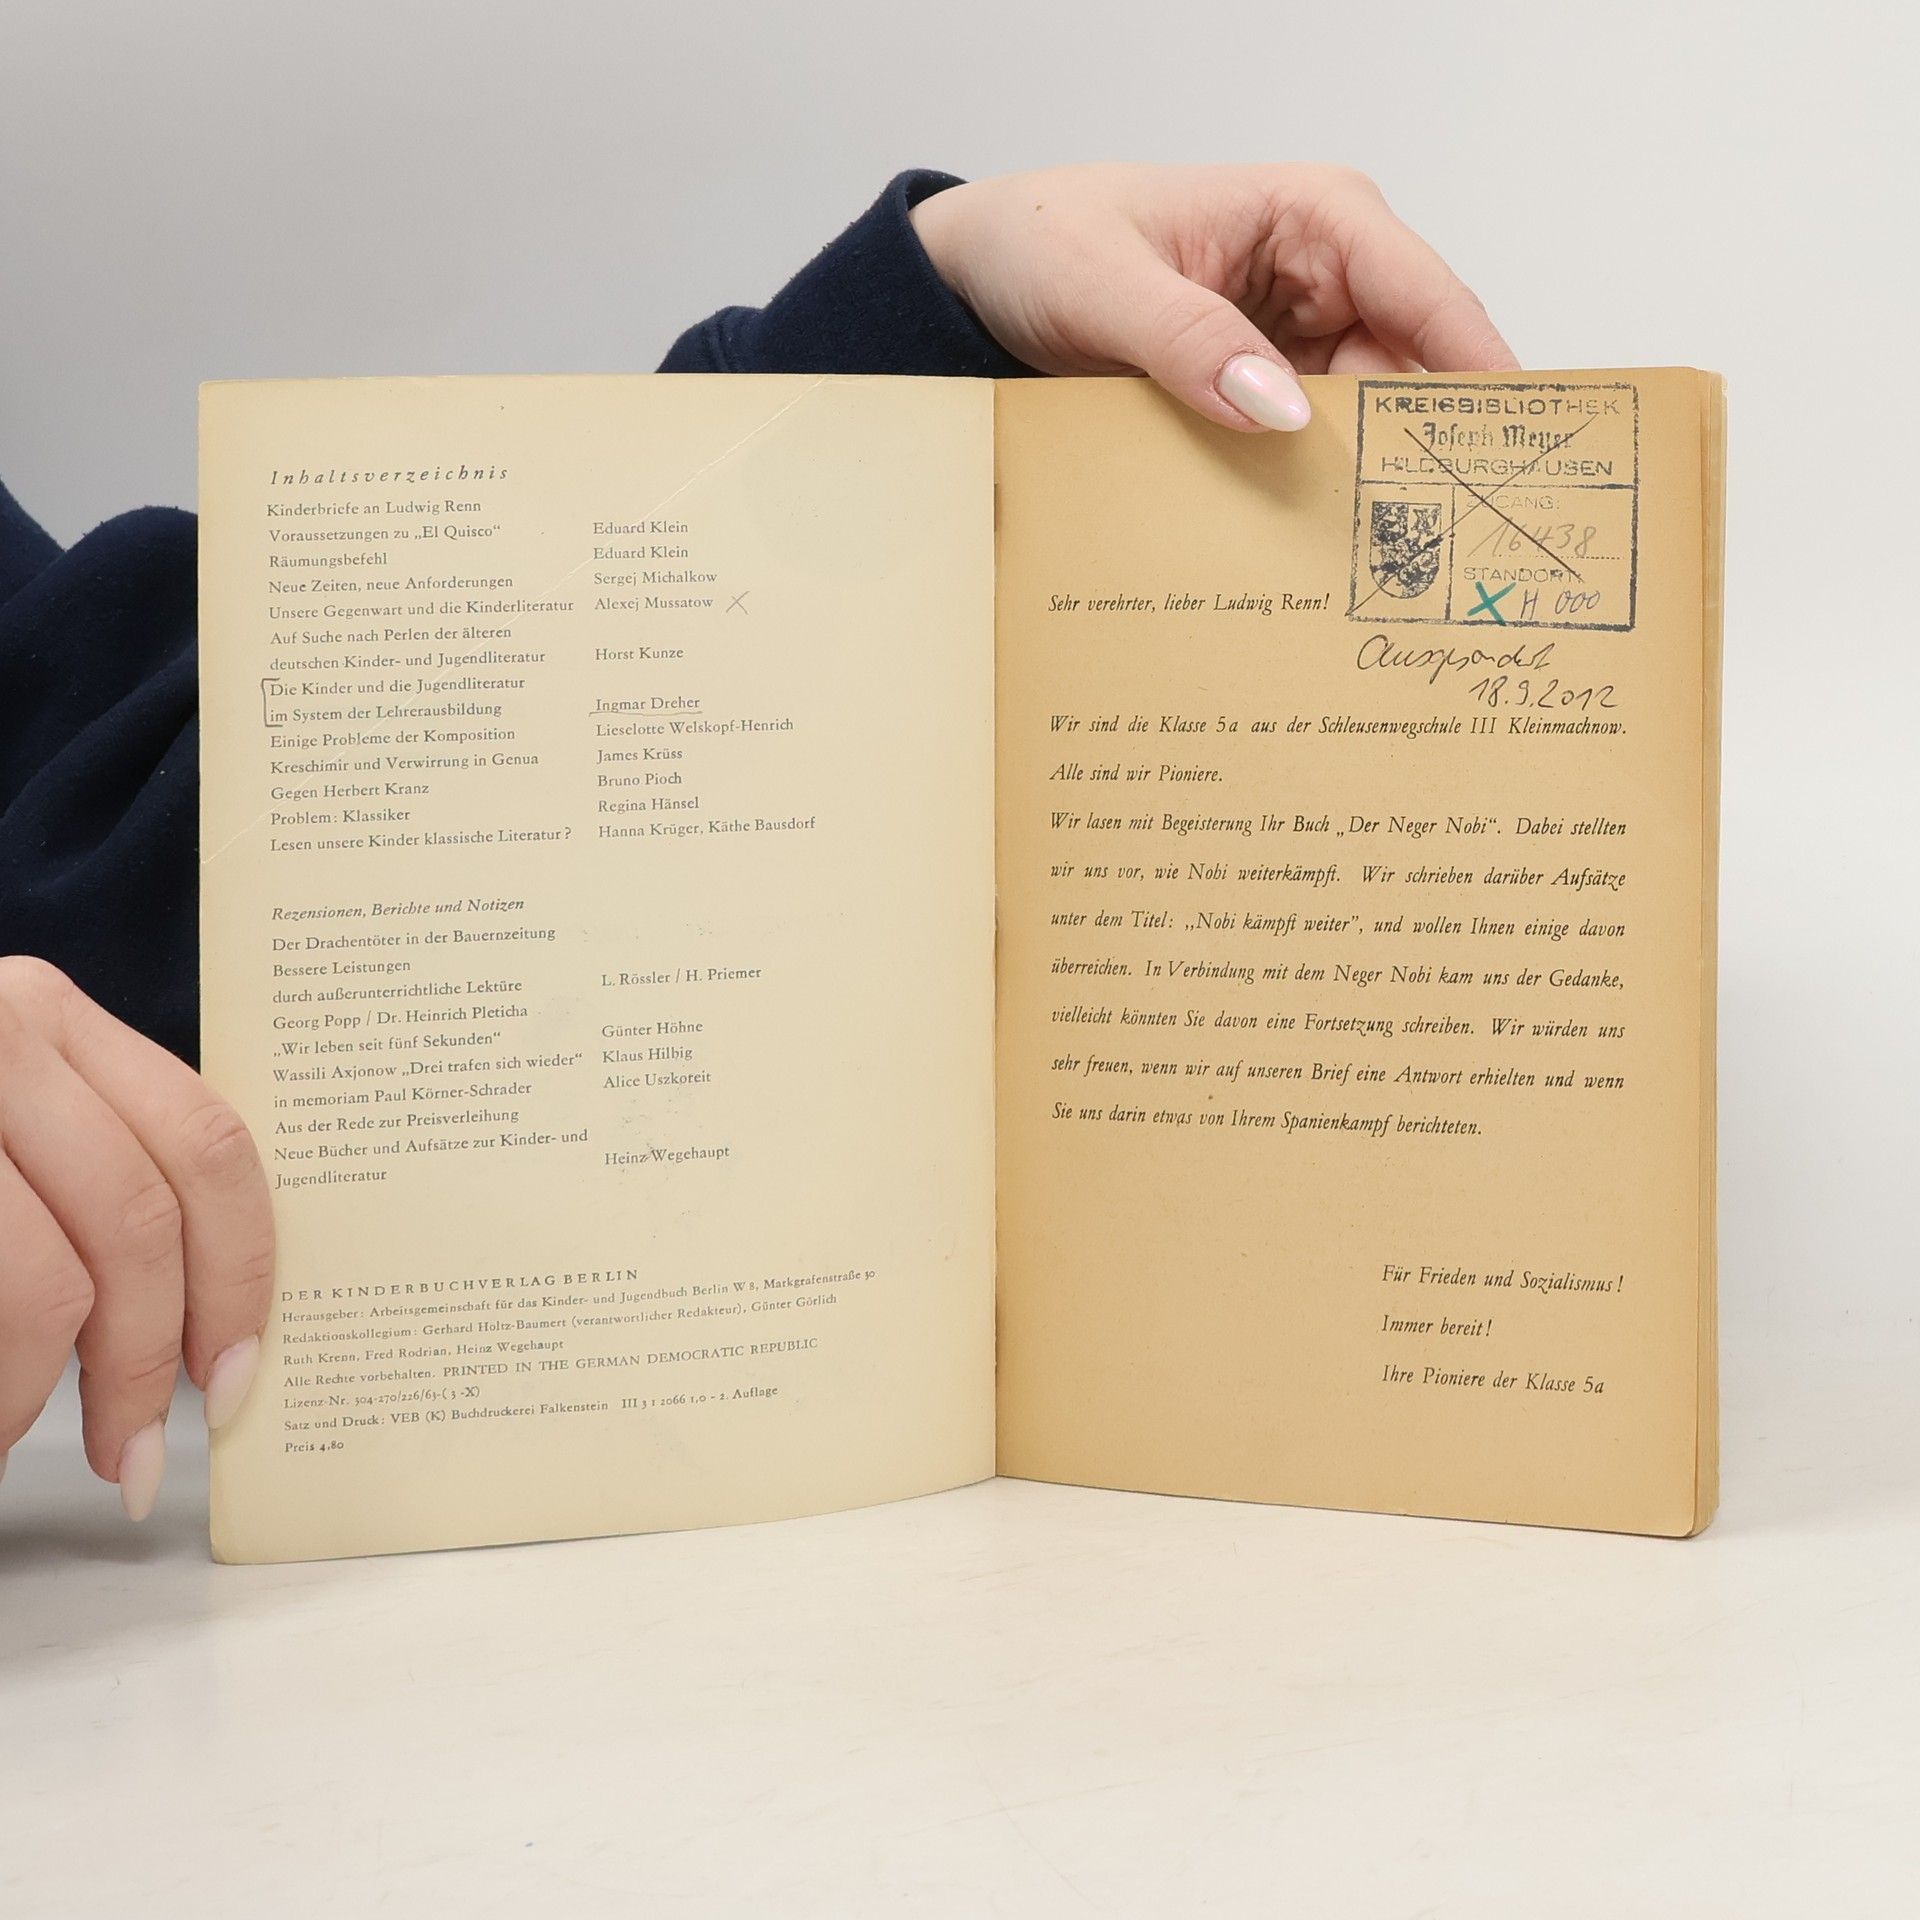 Inhaltsverzeichnis
Kinderbriefe an Ludwig Renn
Voraussetzungen zu „El Quisco“ Eduard Klein
Räumungsbefehl Eduard Klein
Neue Zeiten, neue Anforderungen Sergej Michalkow
Unsere Gegenwart und die Kinderliteratur Alexej Mussatow X
Auf Suche nach Perlen der älteren
deutschen Kinder- und Jugendliteratur Horst Kunze
Die Kinder und die Jugendliteratur
im System der Lehrerausbildung Ingmar Dreher
Einige Probleme der Komposition Lieselotte Welskopf-Henrich
Kreschimir und Verwirrung in Genua James Krüss
Gegen Herbert Kranz Bruno Pioch
Problem: Klassiker Regina Hänsel
Lesen unsere Kinder klassische Literatur? Hanna Krüger, Käthe Bausdorf
Rezensionen, Berichte und Notizen
Der Drachentöter in der Bauernzeitung
Bessere Leistungen
durch außerunterrichtliche Lektüre L. Rössler / H. Priemer
Georg Popp / Dr. Heinrich Pleticha
„Wir leben seit fünf Sekunden“ Günter Höhne
Wassili Axjonow „Drei trafen sich wieder“ Klaus Hilbig
in memoriam Paul Körner-Schrader Alice Uszkoreit
Aus der Rede zur Preisverleihung
Neue Bücher und Aufsätze zur Kinder- und
Jugendliteratur Heinz Wegehaupt
DER KINDERBUCHVERLAG BERLIN
Herausgeber: Arbeitsgemeinschaft für das Kinder- und Jugendbuch Berlin W 8, Markgrafenstraße 30
Redaktionskollegium: Gerhard Holtz-Baumert (verantwortlicher Redakteur), Günter Görlich
Ruth Krenn, Fred Rodrian, Heinz Wegehaupt
Alle Rechte vorbehalten. PRINTED IN THE GERMAN DEMOCRATIC REPUBLIC
Lizenz-Nr. 304-270/226/63-( 3 -X)
Satz und Druck: VEB (K) Buchdruckerei Falkenstein III 3 1 2066 1,0 - 2. Auflage
Preis 4,80
KREISBIBLIOTHEK
Joseph Meyer
HILDBURGHAUSEN
ZUGANG:
16438
STANDORT:
X H 000
Sehr verehrter, lieber Ludwig Renn!
Ausgesondert
18.9.2012
Wir sind die Klasse 5a aus der Schleusenwegschule III Kleinmachnow.
Alle sind wir Pioniere.
Wir lasen mit Begeisterung Ihr Buch „Der Neger Nobi“. Dabei stellten
wir uns vor, wie Nobi weiterkämpft. Wir schrieben darüber Aufsätze
unter dem Titel: „Nobi kämpft weiter”, und wollen Ihnen einige davon
überreichen. In Verbindung mit dem Neger Nobi kam uns der Gedanke,
vielleicht könnten Sie davon eine Fortsetzung schreiben. Wir würden uns
sehr freuen, wenn wir auf unseren Brief eine Antwort erhielten und wenn
Sie uns darin etwas von Ihrem Spanienkampf berichteten.
Für Frieden und Sozialismus!
Immer bereit!
Ihre Pioniere der Klasse 5a